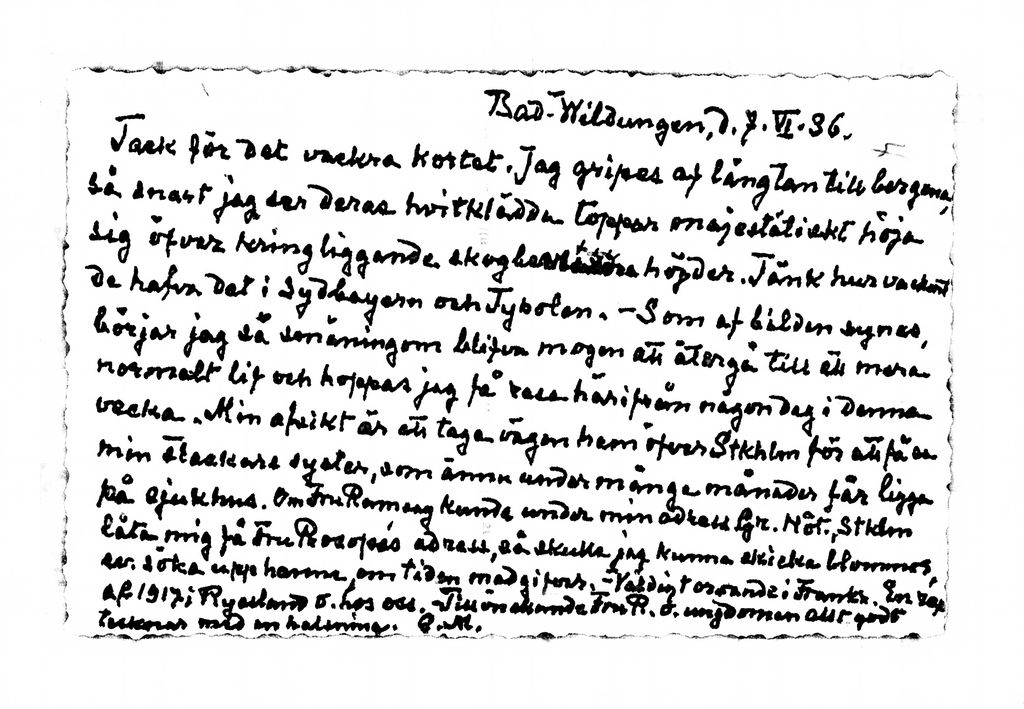 Bad-Wildungen, d. 7. VI. 36.
Tack för det vackra kortet. Jag gripes af längtan till bergena,
så snart jag ser deras hvitklädda toppar majestätiskt höja
sig öfver kringliggande höjder. Tänk hur vackert
de hafva det i Sydbayern och Tyrolen. – Som af bilden synes,
börjar jag så småningom blifva mogen att återgå till ett mera
normalt lif och hoppas jag få resa härifrån någon dag i denna
vecka. Min afsikt är att taga vägen hem öfver Stkhlm för att få se
min stackars syster, som ännu under många månader får ligga
på sjukhus. Om Fru Ramsay kunde under min adress Gr. Hôt., Stkhlm
låta mig få Fru Prosopés adress, så skulle jag kunna skicka blommor,
ev. söka upp henne, om tiden medgifver. – Väldigt oroande i Frankr. En rep.
af 1917 i Ryssland o. hos oss. – Tillönskande Fru R. o. ungdomen allt godt
tecknar med en halsning. G. M.